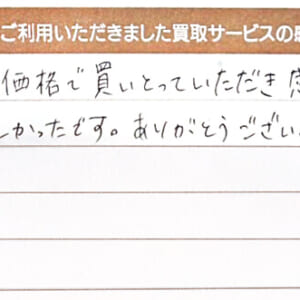 ご利用いただきました買取サービスの
価格で買いとっていただき
かったです。ありがとうござい